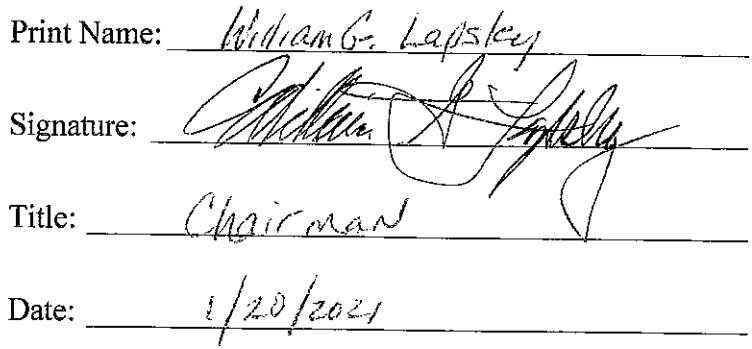 Print Name: William G. Lapsley
Signature: William G Lapsley
Title: Chairman
Date: 1/20/2021